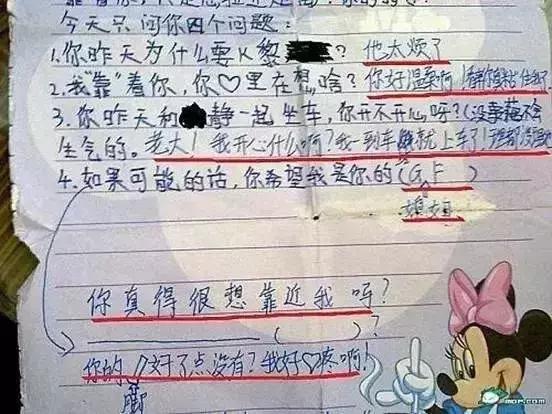 今天只问你四个问题：
1.你昨天为什么要K黎？他太烦了
2.我“靠”着你，你♡里在想啥？你好温柔啊！
3.你昨天和静一起坐车，你开不开心呀？(没事俺不会
生气的。老大！我开心什么啊？我一到车就上车了！
4.如果可能的话，你希望我是你的(G.F)
媳妇
你真得很想靠近我吗？
( )？
你的好了点没有？我好♡疼啊！
脚
MOP.COM